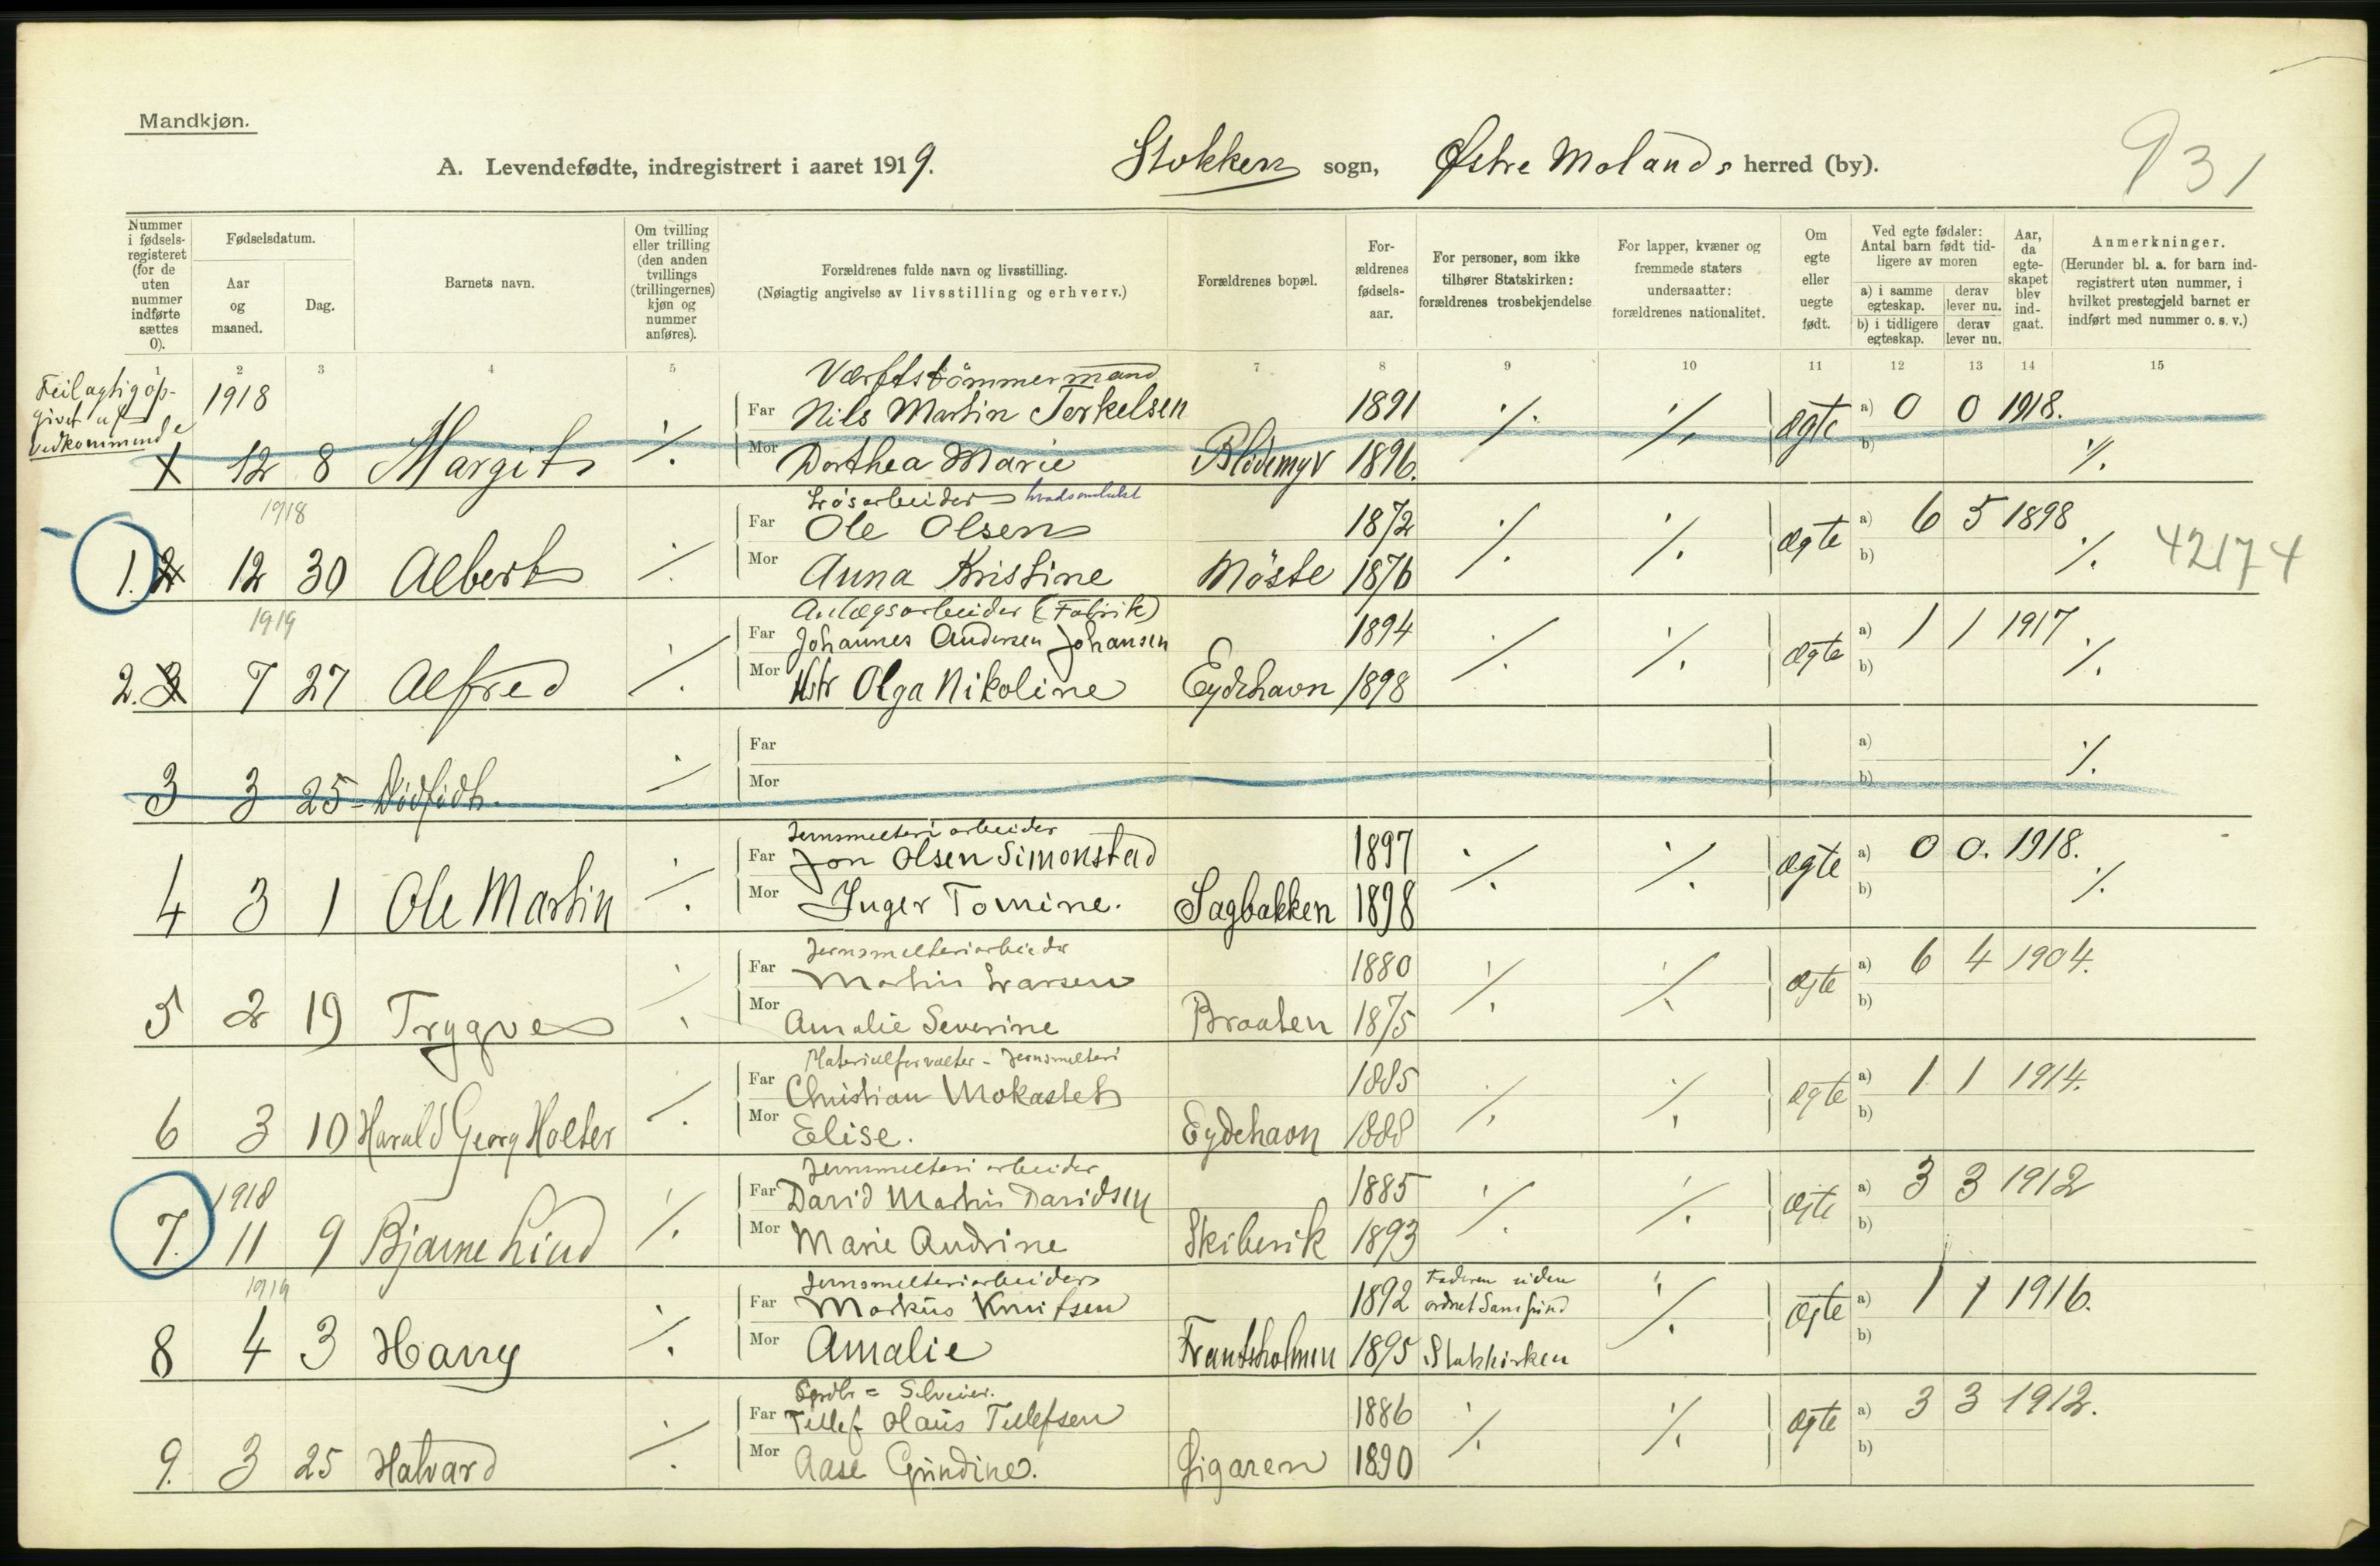 Mandkjøn.
A. Levendefødte, indregistrert i aaret 1919. Stokken sogn, Østre Molands herred (by).
931
Nummer i fødsels-registeret (for de uten nummer indførte sættes 0).
Fødselsdatum.
Aar og maaned.
Dag.
Barnets navn.
Om tvilling eller trilling (den anden tvillings (trillingernes) kjøn og nummer anføres).
Forældrenes fulde navn og livsstilling.
(Nøiagtig angivelse av livsstilling og erhverv.)
Forældrenes bopæl.
For-ældrenes fødsels-aar.
For personer, som ikke tilhører Statskirken: forældrenes trosbekjendelse
For lapper, kvæner og fremmede staters undersaatter: forældrenes nationalitet.
Om egte eller uegte født.
Ved egte fødsler: Antal barn født tid-ligere av moren
a) i samme egteskap. derav lever nu.
b) i tidligere egteskap. derav lever nu.
Aar, da egte-skapet blev ind-gaat.
Anmerkninger.
(Herunder bl. a. for barn ind-registrert uten nummer, i hvilket prestegjeld barnet er indført med nummer o. s. v.)
1 2 3 4 5 7 8 9 10 11 12 13 14 15
Feilagtig op-
givet af
vedkommende
1918
Værftstömmermand
Far Nils Martin Terkelsen 1891 ./. ./. ægte a) 0 0 1918.
1 12 8 Margit ./. Mor Dorthea Marie Blödemyr 1896. b) ./.
1918
Lösarbeider
Far Ole Olsen 1872 ./. ./. ægte a) 6 5 1898
1. 2 12 30 Albert ./. Mor Anna Kristine Möste 1876 b) ./. 42174
1919
Anlægsarbeider (Fabrik)
Far Johannes Andersen Johansen 1894 ./. ./. ægte a) 1 1 1917
2. 3 7 27 Alfred ./. Mor Olga Nikoline Eydehavn 1898 b) ./.
Far a)
3 3 25 - Dödfödt. ./. Mor b) ./.
Jernsmelteriarbeider
Far Jon Olsen Simonstad 1897 ./. ./. ægte a) 0 0. 1918.
4 3 1 Ole Martin ./. Mor Inger Tomine. Sagbakken 1898 b) ./.
Jernsmelteriarbeider
Far Martin Larsen 1880 ./. ./. ægte a) 6 4 1904.
5 2 19 Trygve ./. Mor Amalie Severine Braaten 1875 b)
Materialforvalter - Jernsmelteri
Far Christian Mokastet 1885 ./. ./. ægte a) 1 1 1914.
6 3 10 Harald Georg Holter ./. Mor Elise. Eydehavn 1888 b)
Jernsmelteriarbeider
1918 Far David Martin Davidsen 1885 ./. ./. ægte a) 3 3 1912
7. 11 9 Bjarne Lind ./. Mor Marie Andrine Skibevik 1893 b)
1919
Jernsmelteriarbeider Faderen uden
Far Markus Knutsen 1892 ordnet Samfund ./. ægte a) 1 1 1916.
8 4 3 Harry ./. Mor Amalie Frantsholmen 1895 Statskirken b)
Gårdbr = Selveier.
Far Tellef Olaus Tellefsen 1886 ./. ./. ægte a) 3 3 1912.
9. 3 25 Halvard ./. Mor Aase Gundine. Gigaren 1890 b)